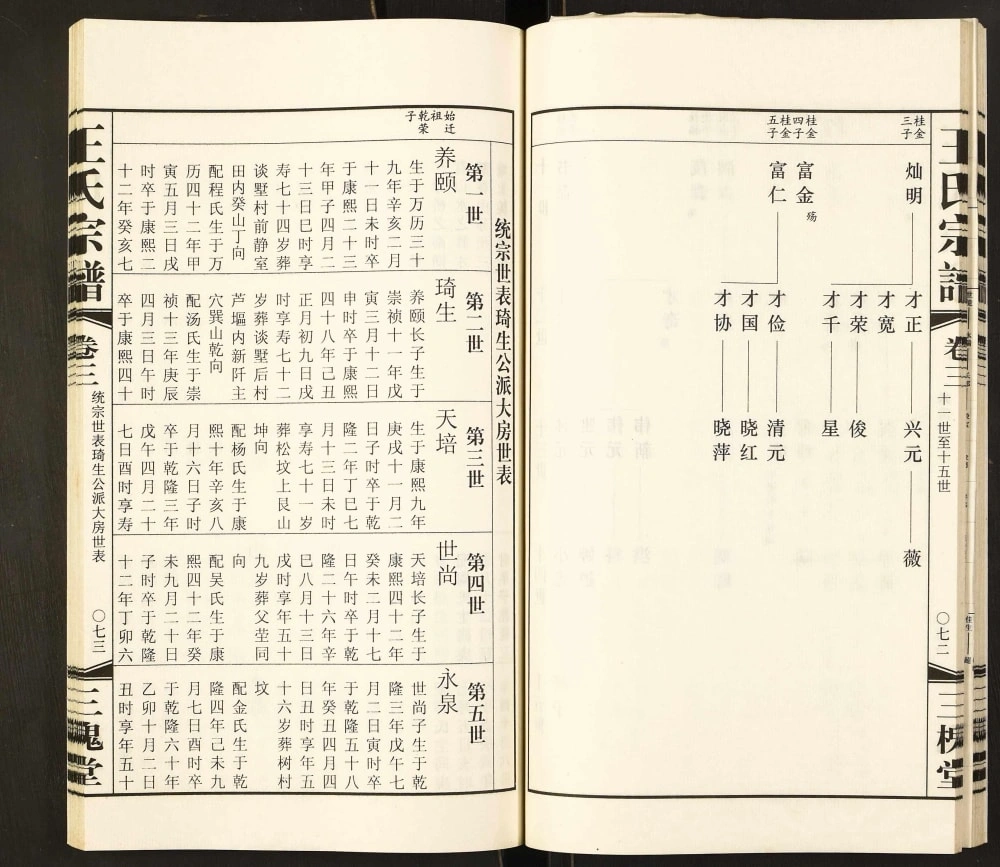 王氏宗谱
卷三
十一世至十五世
〇七二
三槐堂
桂金三子
灿明
才正
兴元
薇
才宽
才荣
俊
才千
星
桂金四子
富金
殇
桂金五子
富仁
才俭
清元
才国
晓红
才协
晓萍
统宗世表琦生公派大房世表
第一世
第二世
第三世
第四世
第五世
始迁祖乾荣子
养颐
生于万历三十
九年辛亥二月
十一日未时卒
于康熙二十三
年甲子四月二
十三日巳时享
寿七十四岁葬
谈墅村前静室
田内癸山丁向
配程氏生于万
历四十二年甲
寅五月三日戌
时卒于康熙二
十二年癸亥七
琦生
养颐长子生于
崇祯十一年戊
寅三月十二日
申时卒于康熙
四十八年己丑
正月初九日戌
时享寿七十二
岁葬谈墅后村
芦塸内新阡主
穴巽山乾向
配汤氏生于崇
祯十三年庚辰
四月三日午时
卒于康熙四十
天培
生于康熙九年
庚戌十一月二
日子时卒于乾
隆二年丁巳七
月十三日未时
享寿七十一岁
葬松坟上艮山
坤向
配杨氏生于康
熙十年辛亥八
月十六日子时
卒于乾隆三年
戊午四月二十
七日酉时享寿
世尚
天培长子生于
康熙四十二年
癸未二月十七
日午时卒于乾
隆二十六年辛
巳八月十三日
戌时享年五十
九岁葬父茔同
向
配吴氏生于康
熙四十二年癸
未九月二十日
子时卒于乾隆
十二年丁卯六
永泉
世尚子生于乾
隆三年戊午七
月二日寅时卒
于乾隆五十八
年癸丑四月四
日丑时享年五
十六岁葬树村
坟
配金氏生于乾
隆四年己未九
月七日酉时卒
于乾隆六十年
乙卯十月二日
丑时享年五十
王氏宗谱
卷三
统宗世表琦生公派大房世表
〇七三
三槐堂